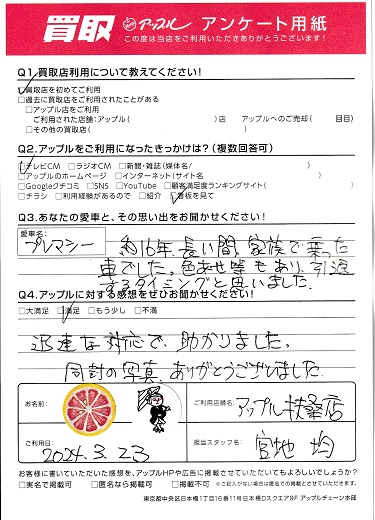 買取 アップル アンケート用紙
この度は当店をご利用いただきありがとうございます!
Q1.買取店利用について教えてください!
☑買取店を初めてご利用
□過去に買取店をご利用されたことがある
□アップル店をご利用
ご利用された店舗:アップル( )店 アップルへのご売却( 回目)
□その他の買取店( )
Q2.アップルをご利用になったきっかけは?(複数回答可)
☑テレビCM □ラジオCM □新聞・雑誌(媒体名/ )
□アップルのホームページ □インターネット(サイト名 )
□Googleクチコミ □SNS □YouTube □顧客満足度ランキングサイト( )
□チラシ □利用経験があるので □紹介 ☑看板を見て
Q3.あなたの愛車と、その思い出をお聞かせください!
愛車名:
プレマシー
約16年、長い間、家族で乗った
車でした。色あせ等もあり、引退
するタイミングと思いました。
Q4.アップルに対する感想をぜひお聞かせください!
□大満足 ☑満足 □もう少し □不満
迅速な対応で、助かりました。
同封の写真、ありがとうございました。
お名前:
ご利用店舗名:
アップル扶桑店
ご利用日:
2024.3.23
担当スタッフ名:
宮地 均
お客様に書いていただいた感想を、アップルHPや広告に掲載させていただいてもよろしいでしょうか?
□実名で掲載可 □匿名なら掲載可 □掲載不可 ※ご記入がない場合は匿名での掲載とさせていただきます。
東京都中央区日本橋1丁目16番11号日本橋Dスクエア9F アップルチェーン本部